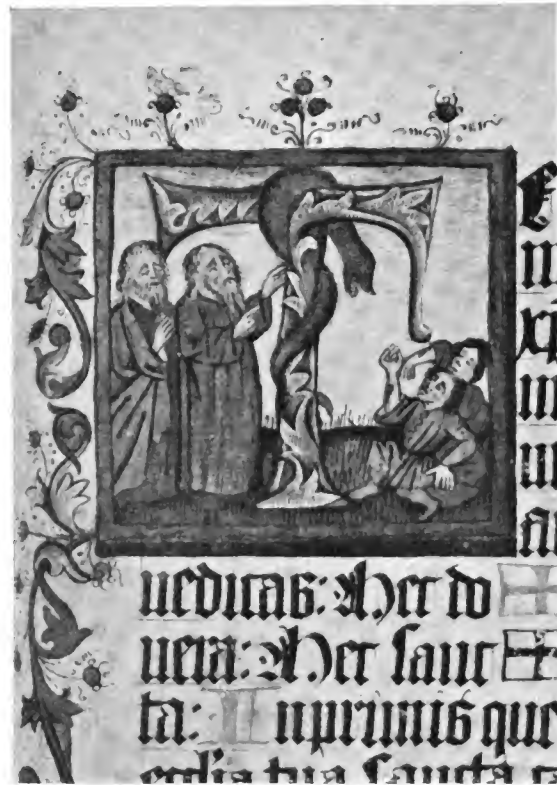 nedicas: Hec do ✠
nera: Hec sanc ✠
ta: Inprimis que
ecclia tua sancta